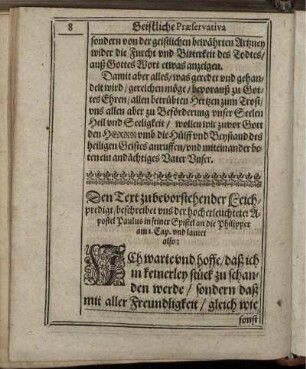 8 Geistliche Præservativa
sondern von der geistlichen bewährten Artzney
wider die Furcht vnd Bitterkeit des Todtes/
auß Gottes Wort etwas anzeigen.
Damit aber alles/ was geredt vnd gehan-
delt wird/ gereichen möge/ bevorauß zu Got-
tes Ehren/ allen betrübten Hertzen zum Trost/
vns allen aber zu Beförderung vnser Seelen
Heil vnd Seeligkeit/ wollen wir zuvor Gott
den HERRN vmb die Hülff vnd Beystand des
heiligen Geistes anruffen/ vnd mit einander be-
ten ein andächtiges Vater Vnser.
Den Text zu bevorstehender Leich-
predigt/ beschreibet vns der hocherleuchteter A-
postel Paulus in seiner Epistel an die Philipper
am 1. Cap. vnd lautet
also:
ICh warte vnd hoffe/ daß ich
in keinerley stück zu schan-
den werde/ sondern daß
mit aller Freundligkeit/ gleich wie
sonst